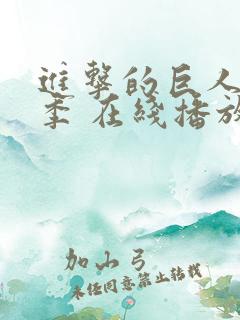 進擊的巨人
季 在綫播放
加山弓
未經同意禁止轉載